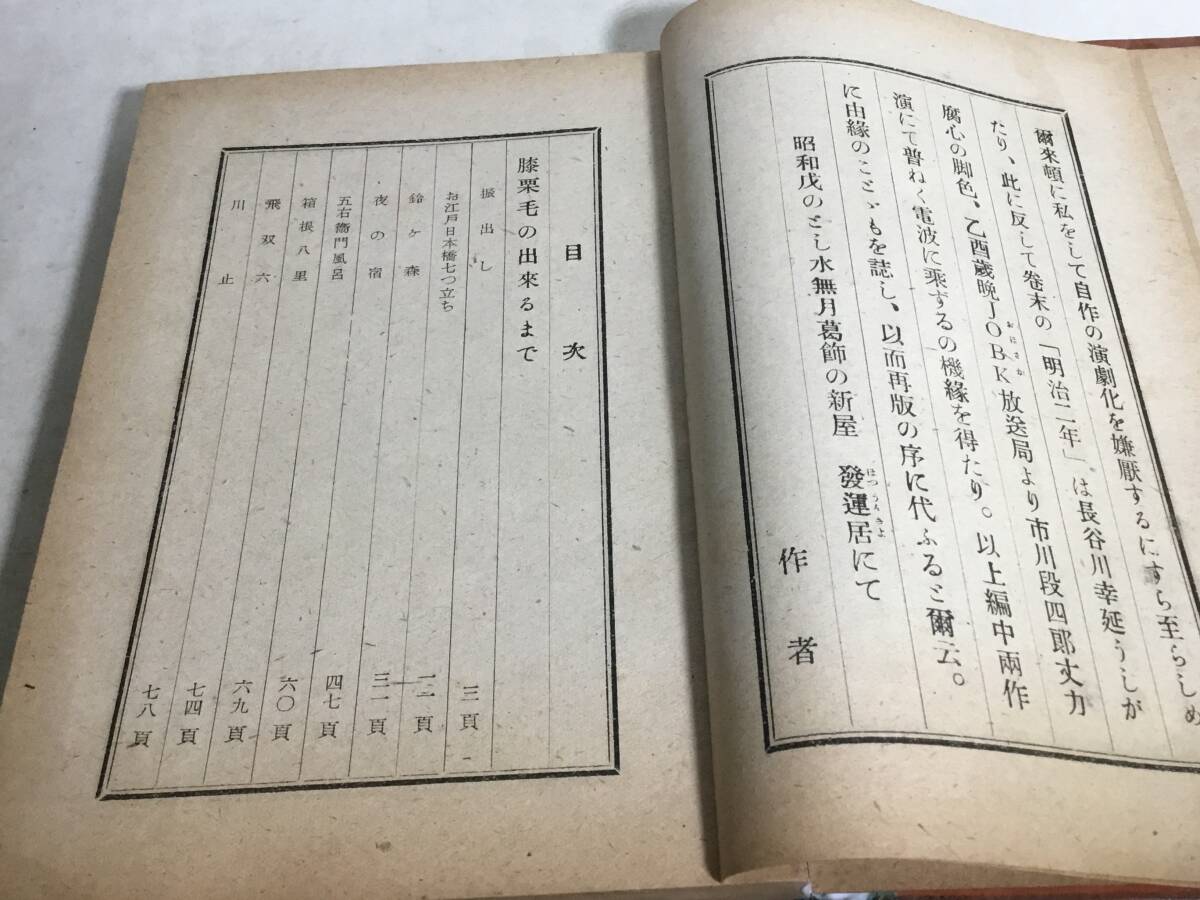 爾來頓に私をして自作の演劇化を嫌厭するにすら至らしめ
たり、此に反して卷末の「明治二年」は長谷川幸延うしが
腐心の脚色、乙酉歲晩JOBK放送局より市川段四郎丈力
おにさか
演にて普ねく電波に乘するの機緣を得たり。以上編中兩作
に由緣のことゞもを誌し、以而再版の序に代ふると爾云。
昭和戊のとし水無月葛飾の新屋 發運居にて
はつうんきよ
作者
目次
膝栗毛の出來るまで
振出し 三頁
お江戸日本橋七つ立ち 一二頁
鈴ヶ森 三一頁
夜の宿 四七頁
五右衞門風呂 六〇頁
箱根八里 六九頁
飛双六 七四頁
川止 七八頁